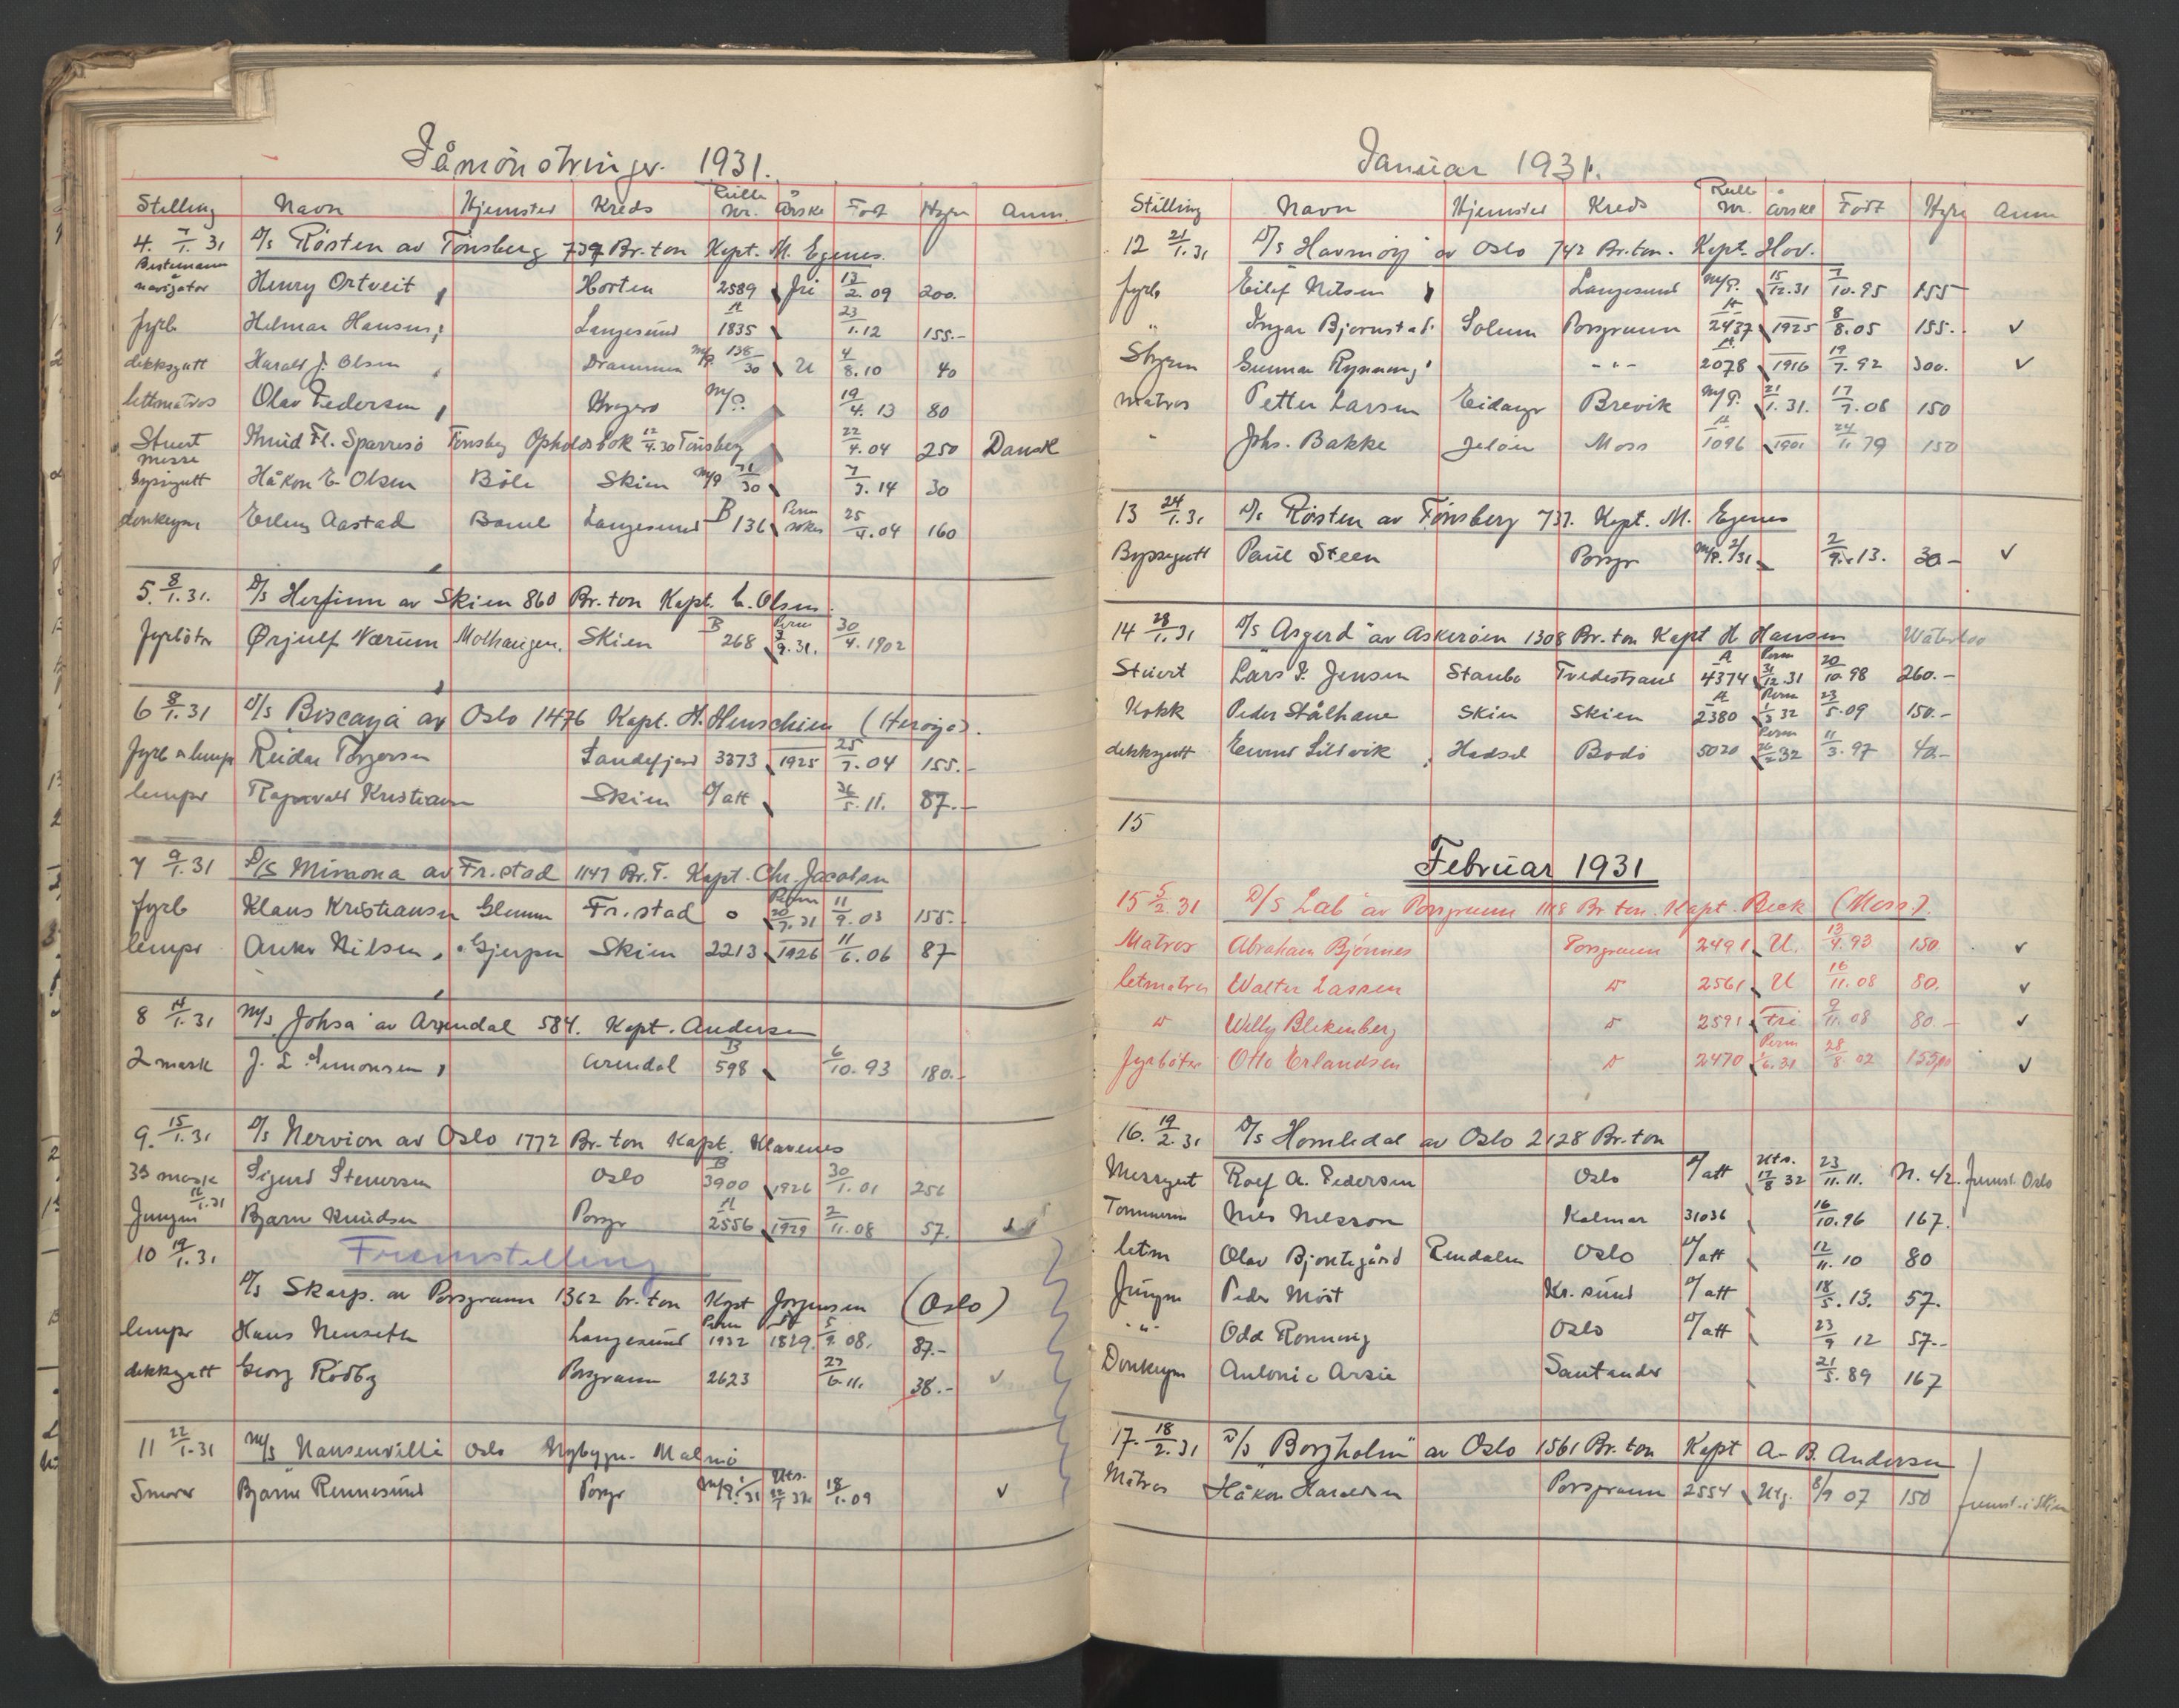 Påmönstringer. 1931.
Stilling Navn Hjemsted Kreds Rulle Nr. årskl Født Hyre Anm.
4. 7/1.31 D/s Rösten av Tönsberg 737 Br.ton Kapt. M. Egenes.
Bestemann navigatør Henry Ortveit Horten 2589 fri 13/2.09 200.
fyrb Helmar Hansen Langesund A 1835 23/1.12 155.-
dekksgutt Harald J. Olsen Drammen M/P. 138/30 U 4/8.10 40
lettmatros Olav Pedersen Kragerø M/P. 19/4.13 80
Stuert Knud Fl. Sparresö Tönsberg Opholdsbok 12/4.30 Tönsberg 22/4.04 250 Dansk
Messe byssegutt Håkon E Olsen Böle Skien M/P 71/30 7/7.14 30
donkeym Erling Aastad Baml Langesund B 136 Perm søker 25/4.04 160
5. 8/1.31. D/s Herfinn av Skien 860 Br.ton Kapt. L. Olsen.
Fyrböter Ørjulf Værum Molhaugen. Skien B 268 Perm 3/9.31. 30/4.1902
6 8/1.31 D/s Biscaya av Oslo 1476 Kapt. H. Henschien (Herøya).
fyrb a lemp Reidar Torgersen Sandefjord 3373 1925 25/7.04 155.-
lemper Ragnvald Kristiansen Skien D/att 26/5.11. 87.-
7 9/1.31 D/s Mimona av Fr.stad 1147 Br.T. Kapt. Chr. Jacobsen
fyrb Klaus Kristiansen Glemm Fr.stad o Perm 20/7.31 11/9.03 155.-
lemper Anker Nilsen Gjerpen Skien 2213 1926 11/6.06 87
8 14/1.31 M/s Johsa av Arendal 584. Kapt. Andersen
2 mask J. L. Simonsen Arendal B 598 6/10.93 180.-
9. 15/1.31 D/s Nervion av Oslo 1772 Br.ton Kapt. Klavenes
3s mask Sigurd Stenersen Oslo B 3900 1926 30/1.01 256
Jungm 16/1.31 Bjarne Knudsen Porsgr A 2556 1929 2/11.08 57.
10 19/1.31 Fremstilling
D/s Skarp. av Porsgrunn 1362 br.ton Kapt Jörgensen (Oslo)
lemper Hans Nenseth Langesund Perm 1932 A 1829. 5/9.08. 87.-
dekksgutt Georg Rödby Porsgrunn 2623 27/6.11. 38.-
11 22/1.31 M/s Nansenville Oslo Nybygn. Malmö
Smører Bjarne Rennesund Porsgr M/P. 1/31 Uts. 32 18/1.09
Januar 1931.
Stilling Navn Hjemsted Kreds Rull Nr. årskl Født Hyre Anm
12 21/1.31 D/s "Havmöy" av Oslo 742 Br.ton. Kapt. Hov.
fyrb Eilef Nilsen Langesund M/P. 15/12.31 7/10.95 155
" Ingar Bjornstad Solum Porsgrunn A 2437 1925 8/8.05 155..
Styrm Gunnar Rynning - " - A 2078 1916 19/7.92 300.
Matros Petter Larsen Eidangr Brevik M/P. 21/1.31. 17/7.08 150
" Johs. Bakke Jelöen Moss A 1096 1901 24/11 79 150
13 24/1.31 D/s Rösten av Tönsberg 737. Kapt. M. Egenes
Byssegutt Paul Steen Porsgr M/P. 2/31 2/9.13. 30.-
14 28/1.31 D/s "Asgerd" av Askerøen 1308 Br.ton Kapt H Hansen Waterloo
Stuert Lars J. Jensen Staubo Tvedestrand A 4374 Perm 31/12.31 20/10.98 260.-
Kokk Peder Stålhane Skien Skien A 2380 Perm 1/3 32 23/5.09 150.-
dekksgutt Eivind Hadsel Bodö 5020 Perm 26/2 32 11/3.97 40.-
15
Februar 1931
15 5/2.31 D/s "Lab" av Porsgrunn 1118 Br ton. Kapt. Beck (Moss).
Matros Abraham Bjönnes Porsgrunn 2491 U. 13/4.93 150
letmatros Walter Lassen D 2561 U 16/11.08 80.
D Willy Blekenberg D 2591 Fri 9/11.08 80.-
Fyrböter Otto Erlandsen D 2470 Perm 1/6.31 28/8.02 155,00
16. 19/2.31 D/s Homledal av Oslo 2128 Br.ton
Messegut Rolf A. Pedersen Oslo D/att Uts. 17/8 32 23/11.11. N. 42. fremst Oslo
Tømmerm Nils Nilsson Kalmar 31036 16/10.96 167.
letm Olav Bjontegård Rendalen Oslo D/att 12/11.10 80
Jungm Peder Möst Kr.sund D/att 18/5.13. 57.
- " - Odd Ronning Oslo D/att 23/9 12 57.-
Donkeym Antonio Arsie Santander 21/5.89 167
17. 18/2.31 D/s "Borgholm" av Oslo 1561 Br.ton Kapt A. B. Andersen
Matros Håkon Haraldsen Porsgrunn 2554 Utg. 8/9 07 150 fremst. i Skien